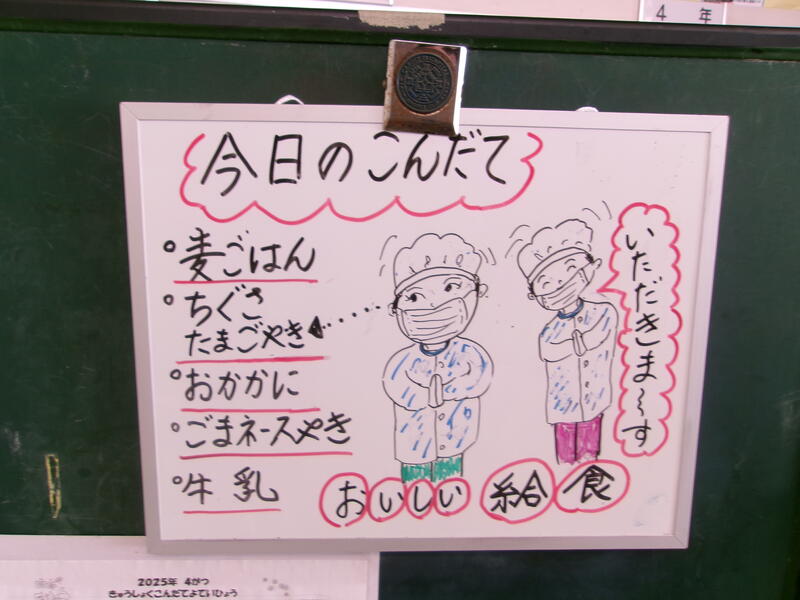 4 年
今日のこんだて
麦ごはん
ちぐさ
たまごやき
おかかに
ごまネースやき
牛乳
いただきま〜す
おいしい 給食
2025年 4がつ
きゅうしょくこんだてよていひょう